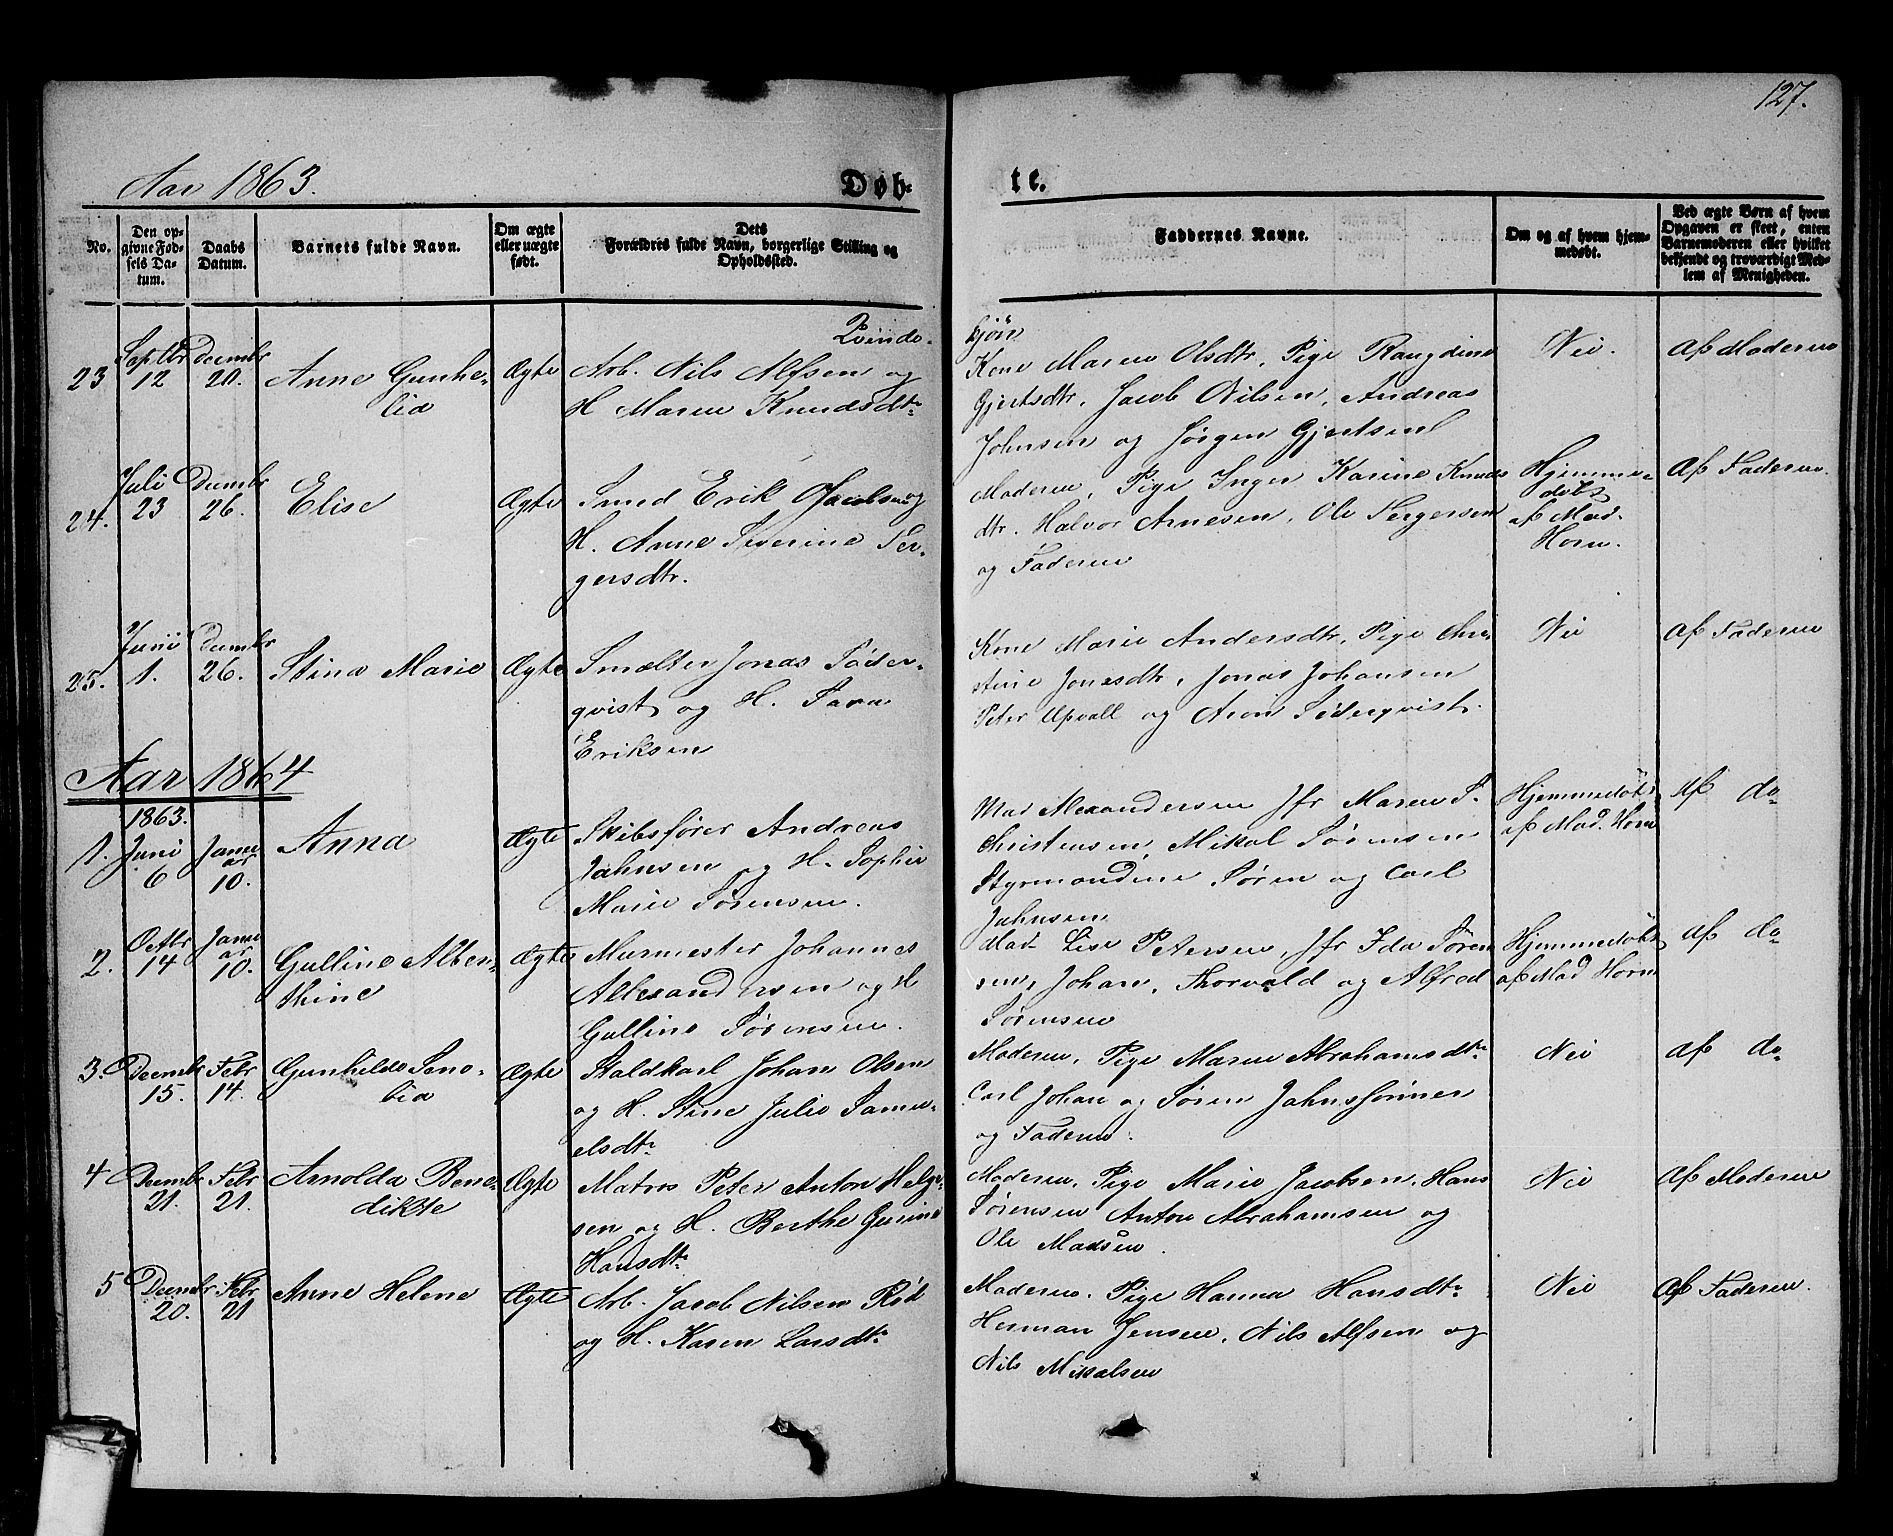 127.
Aar 1863.
Døb-
te.
No.
Den op-
givne Fød-
sels Da-
tum.
Daabs
Datum.
Barnets fulde Navn.
Om ægte
eller uægte
født.
Dets
Forældres fulde Navn, borgerlige Stilling og
Opholdssted.
Faddernes Navne.
Om og af hvem hjem-
medøbt.
Ved ægte Børn af hvem
Opgaven er skeet, enten
Barnemoderen eller hvilket
bekjendt og troværdigt Med-
lem af Menigheden.
Qvinde-
kjøn
23
Septbr
12
Decembr
20.
Anne Gunhe-
lia
Ægte
Arb. Nils Alfsen og
H Maren Knudsdtr
Kone Maren Olsdtr, Pige Rangdine
Gjertsdtr, Jacob Nilsen, Andreas
Johnsen og Jørgen Gjertsen
Nei.
af Moderen
24.
Juli
23
Decembr
26.
Elise
Ægte
Smed Erik Jacobsen og
H. Anne Severine Ser-
gersdtr.
Moderen, Pige Inger Karine Knuds
dtr. Halvor Arnesen, Ole Sergersen
og Faderen
Hjemme-
døbt
af Mad.
Horn.
af Faderen.
25.
Juni
1.
Decembr
26.
Stina Marie
Ægte
Smelter Jonas Søder-
qvist og H. Sara
Eriksen
Kone Marie Andersdtr, Pige Chri-
stine Jonesdtr, Jonas Johansen
Peter Upvall og Aron Søderqvist.
Nei
af Faderen
Aar 1864
1863.
1.
Juni
6
Janu
ar
10.
Anna
Ægte
Skibsfører Andreas
Jahnsen og H. Sophie
Marie Sørensen.
Mad Alexandersen Jfr Maren S.
Christensen, Mikal Sørensen
Styrmændene Søren og Carl
Jahnsen
Hjemmedøbt
af Mad. Horn
af do-
2.
Octbr
14
Janu
ar
10.
Gulline Alber-
thine
Ægte
Murmester Johannes
Allexandersen og H
Gulline Sørensen.
Mad Lise Petersen, Jfr Ida Søren
sen, Johan, Thorvald og Alfred
Sørensen
Hjemmedøbt
af Mad Horn
af do-
3.
Decembr
15.
Febr
14.
Gunhilde Seno-
bia
Ægte
Staldkarl Johan Olsen
og H. Stine Julie Samu-
elsdtr
Moderen, Pige Maren Abrahamsdtr
Carl Johan og Søren Jahnsføriner
og Faderen.
Nei
af do-
4
Decembr
21.
Febr
21.
Arnolda Bene-
dikte
Ægte
Matros Peter Anton Helge-
sen og H. Berthe Gurine
Hansdtr
Moderen, Pige Marie Jacobsen, Hans
Sørensen Anton Abrahamsen og
Ole Madsen.
Nei
af Moderen
5
Decembr
20.
Febr
21
Anne Helene
Ægte
Arb. Jacob Nilsen Rød
og H. Karen Larsdtr
Moderen. Pige Hanna Hansdtr
Herman Jensen, Nils Alfsen og
Nils Mikalsen
Nei
af Faderen.